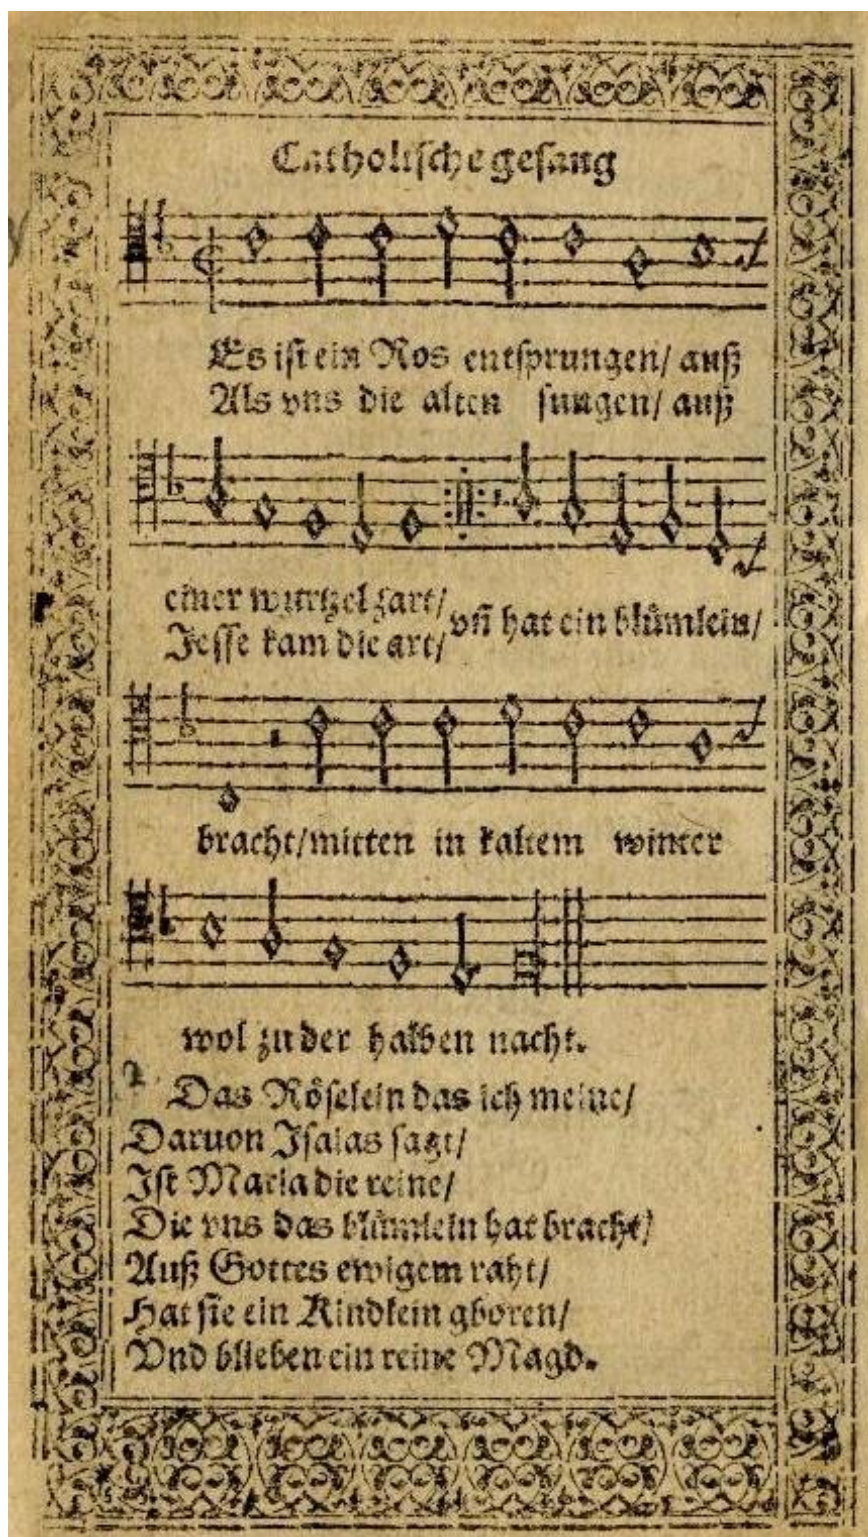 Catholische gesang
Es ist ein Ros entsprungen/ auß
Als vns die alten sungen/ auß
einer wurtzel zart/
Jesse kam die art/
vñ hat ein blůmlein/
bracht/mitten in kaltem winter
wol zu der halben nacht.
2 Das Röselein das ich meine/
Daruon Jsaias sagt/
Jst Maria die reine/
Die vns das blůmlein hat bracht/
Auß Gottes ewigem raht/
Hat sie ein Kindlein gboren/
Vnd blieben ein reine Magd.